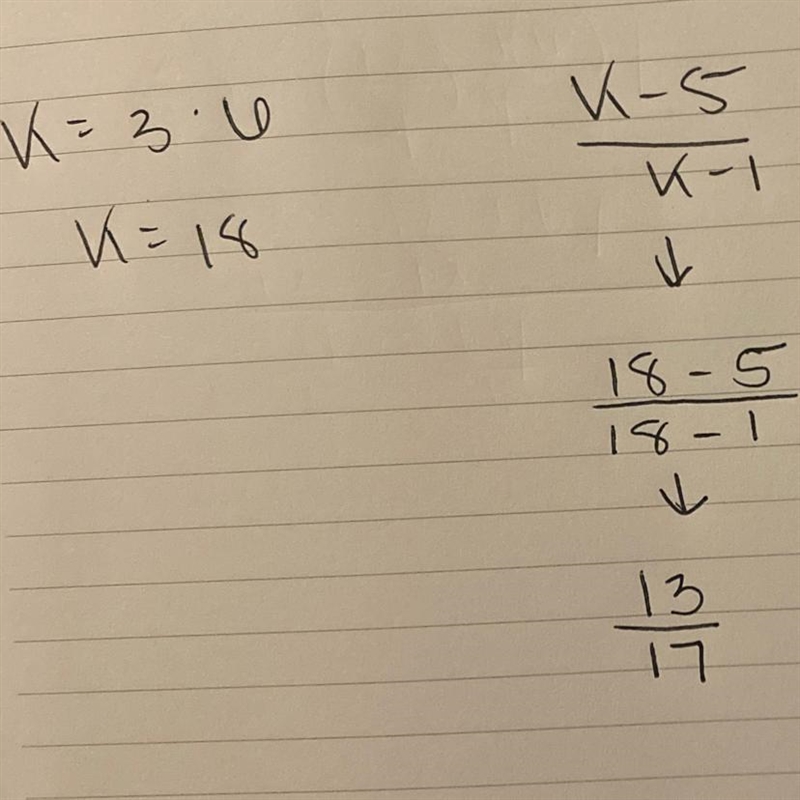 K = 3 · 6
K = 18
K - 5
K - 1
↓
18 - 5
18 - 1
↓
13
17